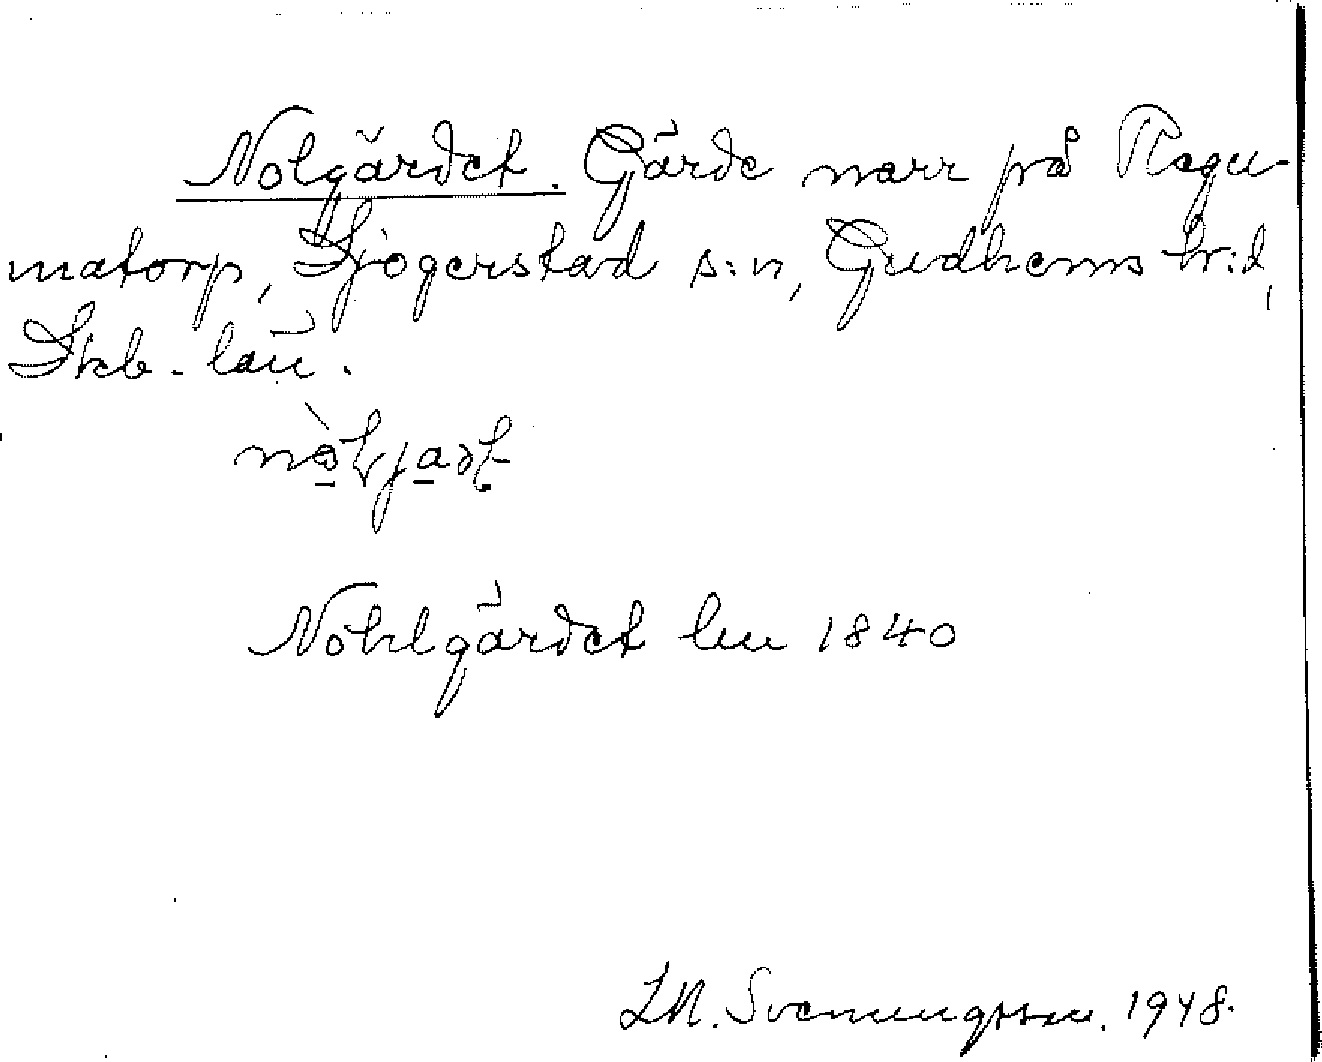 Nolgärdet. Gärde norr på Ragu-
matorp, Sjogerstad s:n, Gudhems hr:d,
Skb. län.
Nohlgärdet lm 1840
Svenningsson. 1948.